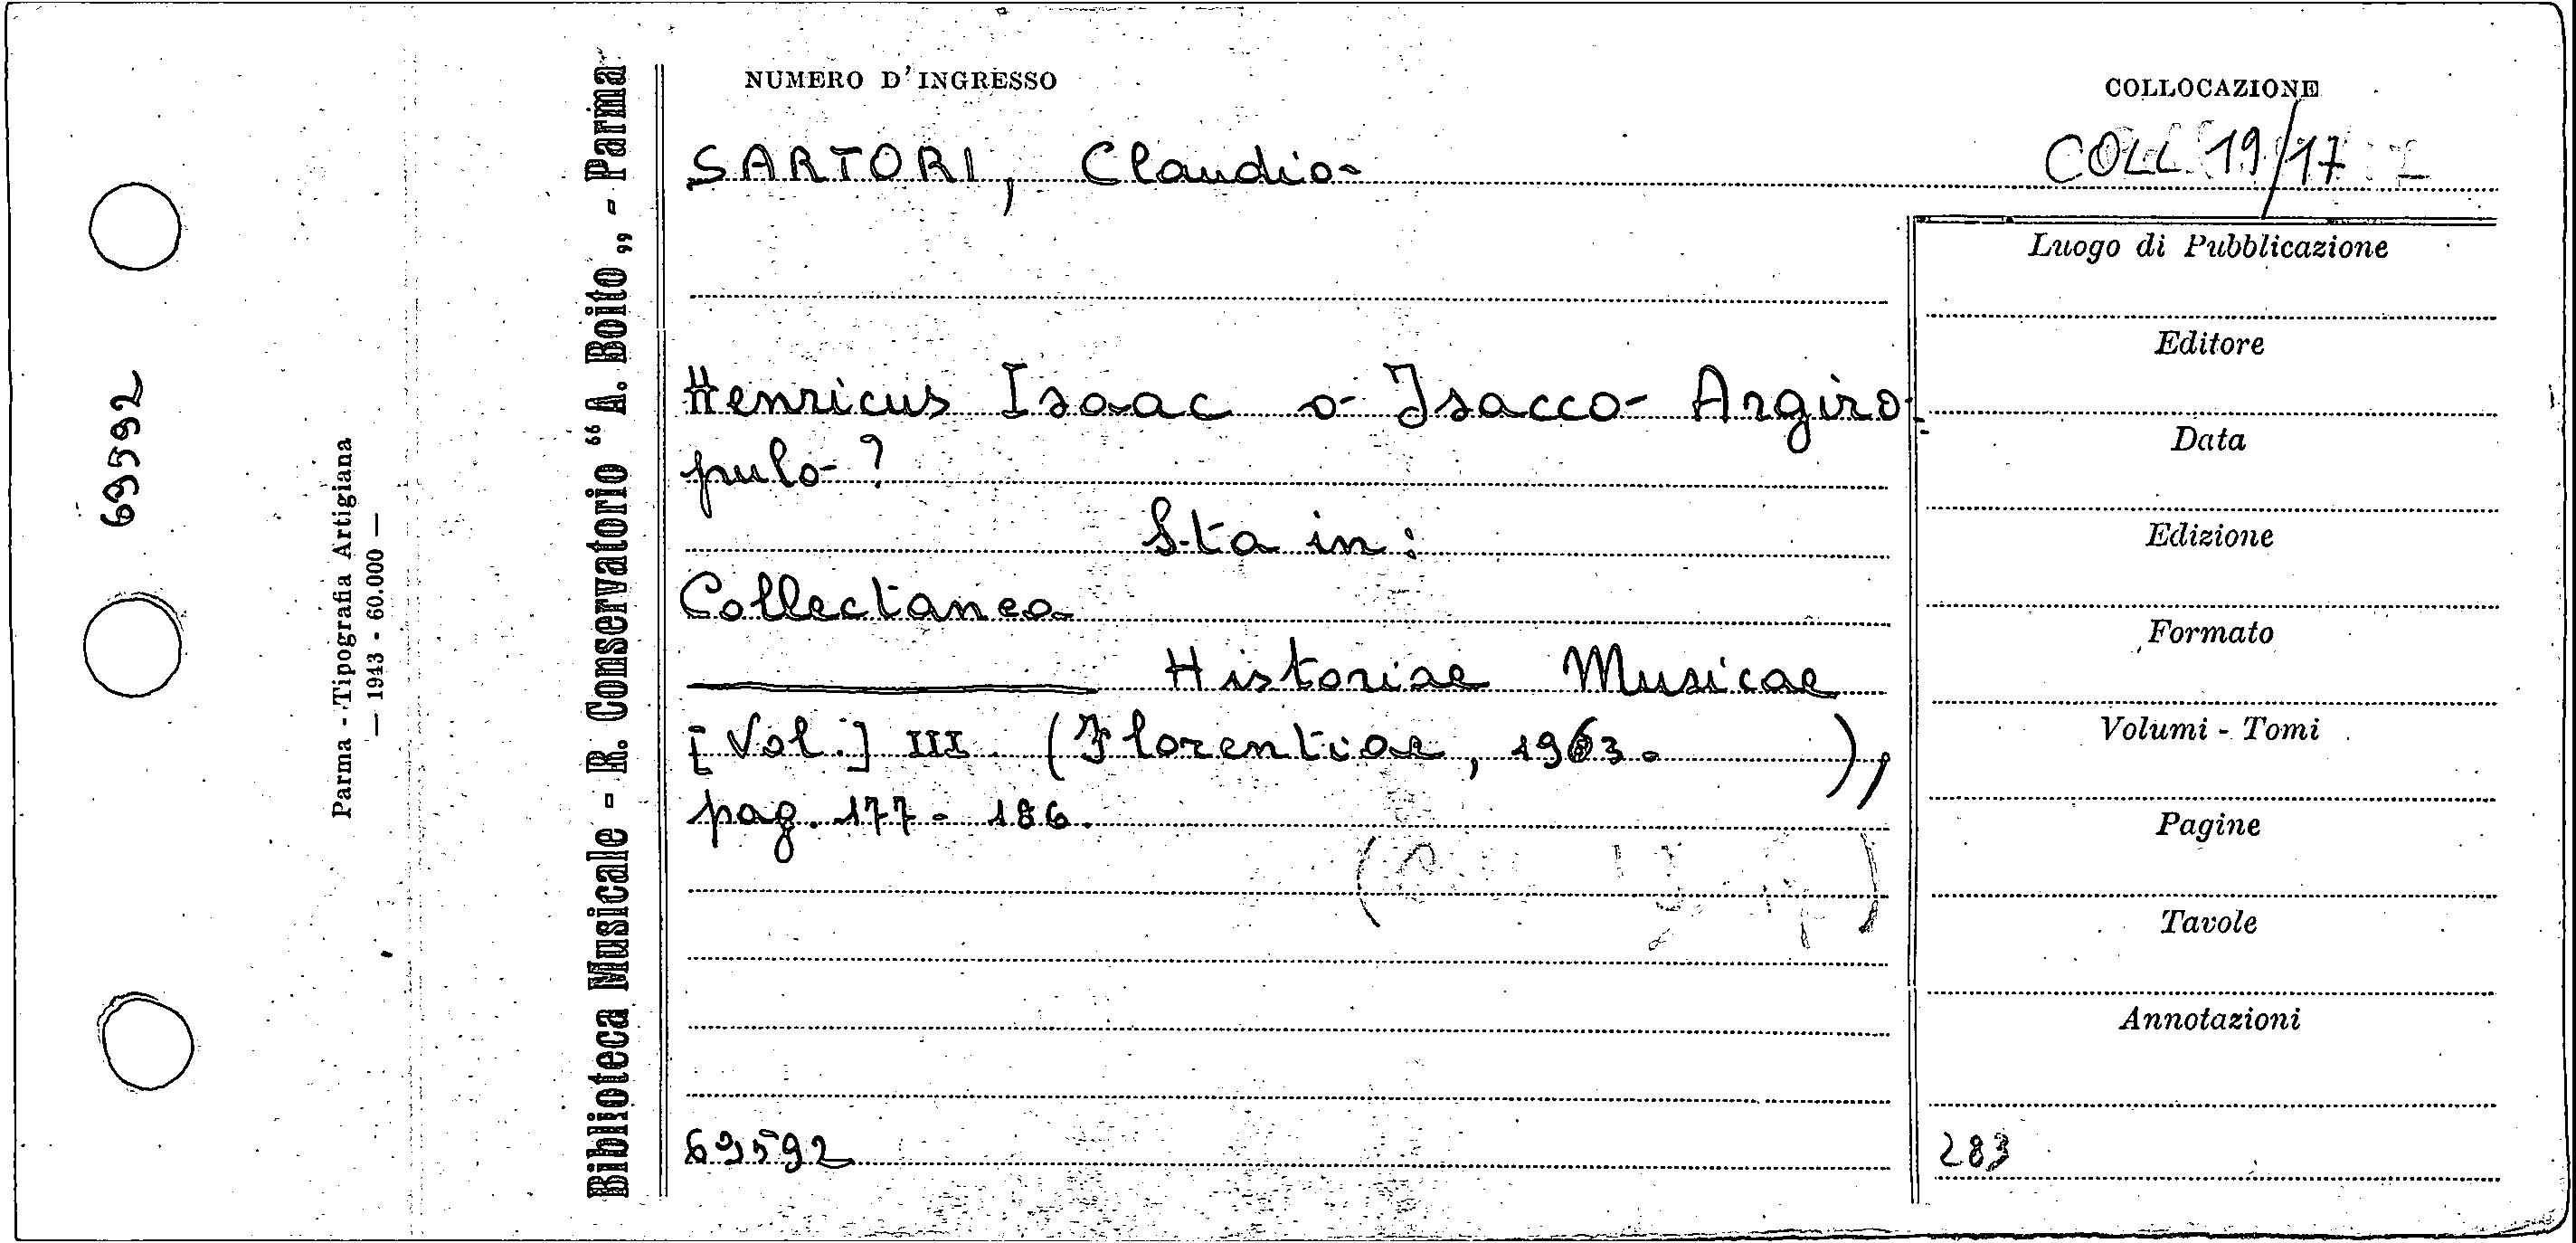 NUMERO D'INGRESSO
COLLOCAZIONE
SARTORI, Claudio
COLL 19/17
Henricus Isaac o Isacco Argiro-
pulo?
Sta in:
Collectanea
Historiae Musicae
[Vol.] III (Florentiae, 1963. ),
pag. 177-186.
69592
Luogo di Pubblicazione
Editore
Data
Edizione
Formato
Volumi - Tomi
Pagine
Tavole
Annotazioni
283
Biblioteca Musicale - R. Conservatorio “A. Boito„ - Parma
Parma - Tipografia Artigiana
— 1943 - 60.000 —
69592